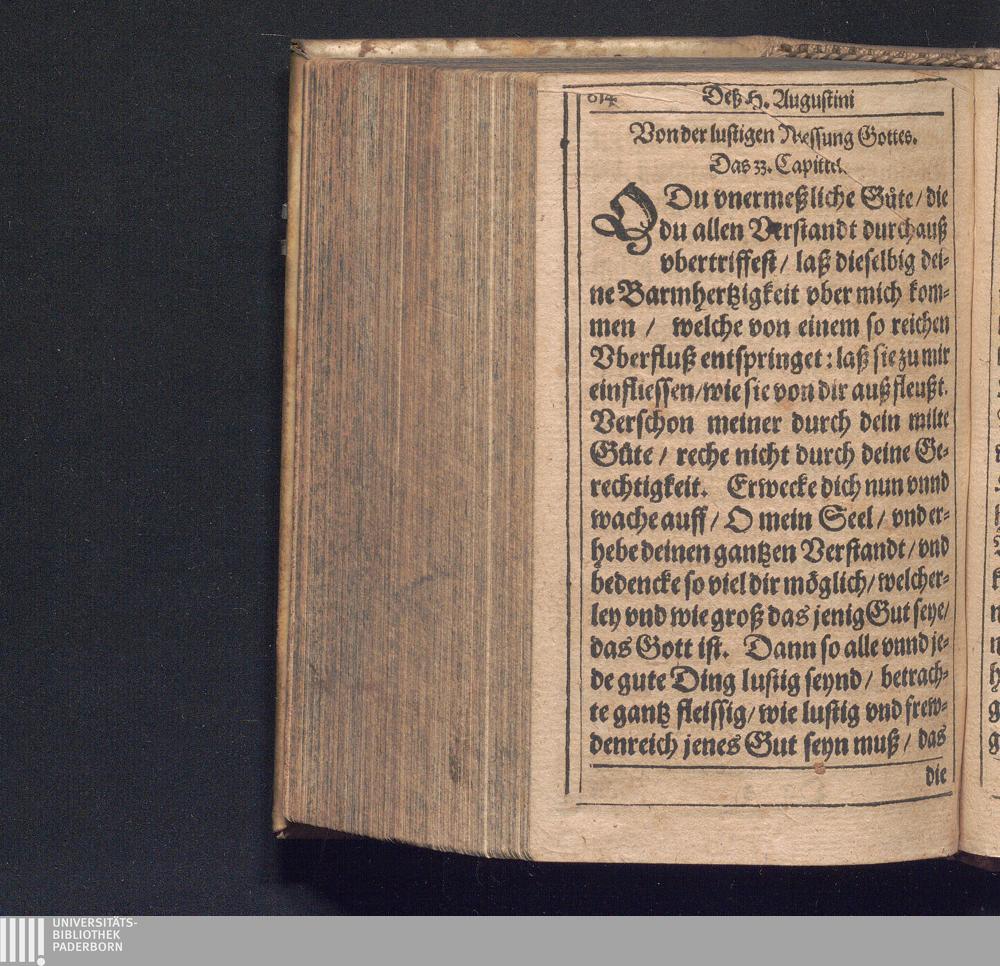 614 Deß H. Augustini
Von der lustigen Niessung Gottes.
Das 33. Capittel.
O Du vnermeßliche Güte/ die
du allen Verstandt durchauß
vbertriffest/ laß dieselbig dei-
ne Barmhertzigkeit vber mich kom-
men / welche von einem so reichen
Vberfluß entspringet: laß sie zu mir
einfliessen/ wie sie von dir außfleußt.
Verschon meiner durch dein milte
Güte / reche nicht durch deine Ge-
rechtigkeit. Erwecke dich nun vnnd
wache auff/ O mein Seel/ vnd er-
hebe deinen gantzen Verstandt/ vnd
bedencke so viel dir möglich/ welcher-
ley vnd wie groß das jenig Gut seye/
das Gott ist. Dann so alle vnnd je-
de gute Ding lustig seynd/ betrach-
te gantz fleissig/ wie lustig vnd frew-
denreich jenes Gut seyn muß/ das
die
UNIVERSITÄTS-
BIBLIOTHEK
PADERBORN